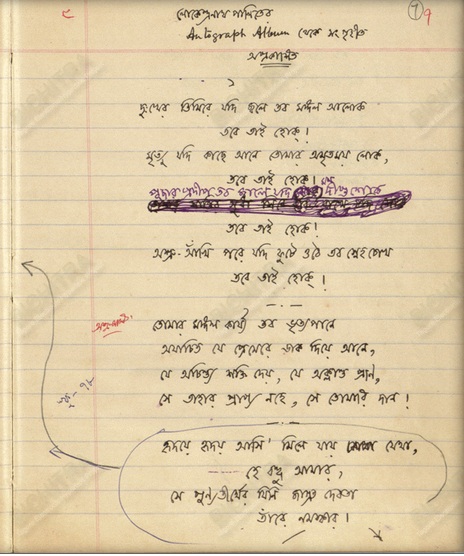 ৫
৭
লোকেন্দ্রনাথ পালিতের
Autograph Album থেকে সংগৃহীত
অপ্রকাশিত
১
দুঃখের তিমিরে যদি জ্বলে তব মঙ্গল আলোক
তবে তাই হোক্!
মৃত্যু যদি কাছে আনে তোমার অমৃতময় লোক,
তবে তাই হোক্!
পূজার প্রদীপে তব জ্বলে যদি মম দীপ্ত শোক
তবে তাই হোক্!
অশ্রু-আঁখি পরে যদি ফুটে ওঠে তব স্নেহ চোখ
তবে তাই হোক্!
তোমার মঙ্গল কার্য্য তব ভৃত্যপানে
অযাচিত যে প্রেমেরে ডাক দিয়ে আনে,
যে অচিন্ত্য শক্তি দেয়, যে অক্লান্ত প্রাণ,
সে তাহার প্রাপ্য নহে, সে তোমারি দান!
হৃদয়ে হৃদয় আসি' মিলে যায় যেথা,
হে বন্ধু আমার,
সে পুণ্যতীর্থের যিনি জাগ্রত দেবতা
তাঁরে নমস্কার।